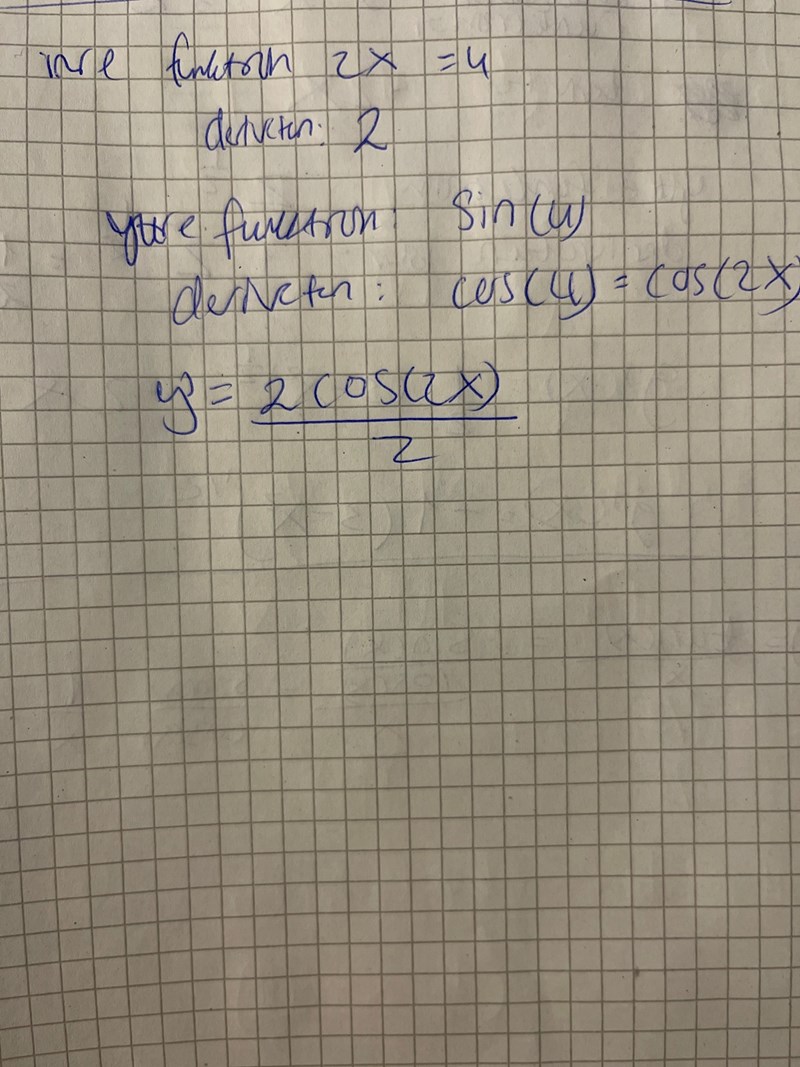 inre funktion 2x = u
derivatan: 2
yttre funktion: sin(u)
derivatan: cos(u) = cos(2x)
y' = 2cos(2x)
2